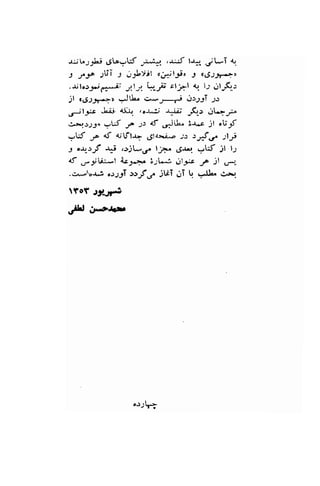 به آسانی پیدا کنند، بیشتر کتابهای قطور مانند
«جمهوری» و «قوانین» افلاطون و آثار هومر و
دیگران را به اجزاء تقریباً برابر تقسیم نموده‌اند.
در آوردن فهرست مطالب «جمهوری» از
مترجمان دیگر تقلید نشده، بلکه فقط عنوانی
کوتاه از عمده مطالبی که در هر کتاب موردبحث
قرار می‌گیرد در صفحه‌ای جداگانه که هر کتاب
را از کتاب بعدی مجزا می‌سازد، قید گردیده و
پس از هر عنوان شمارهٔ صفحهٔ استفانوس که
بحث مطلب با آن آغاز می‌گردد آورده شده‌است.
شهریور ۱۳۵۳
محمدحسن لطفی
چهارده